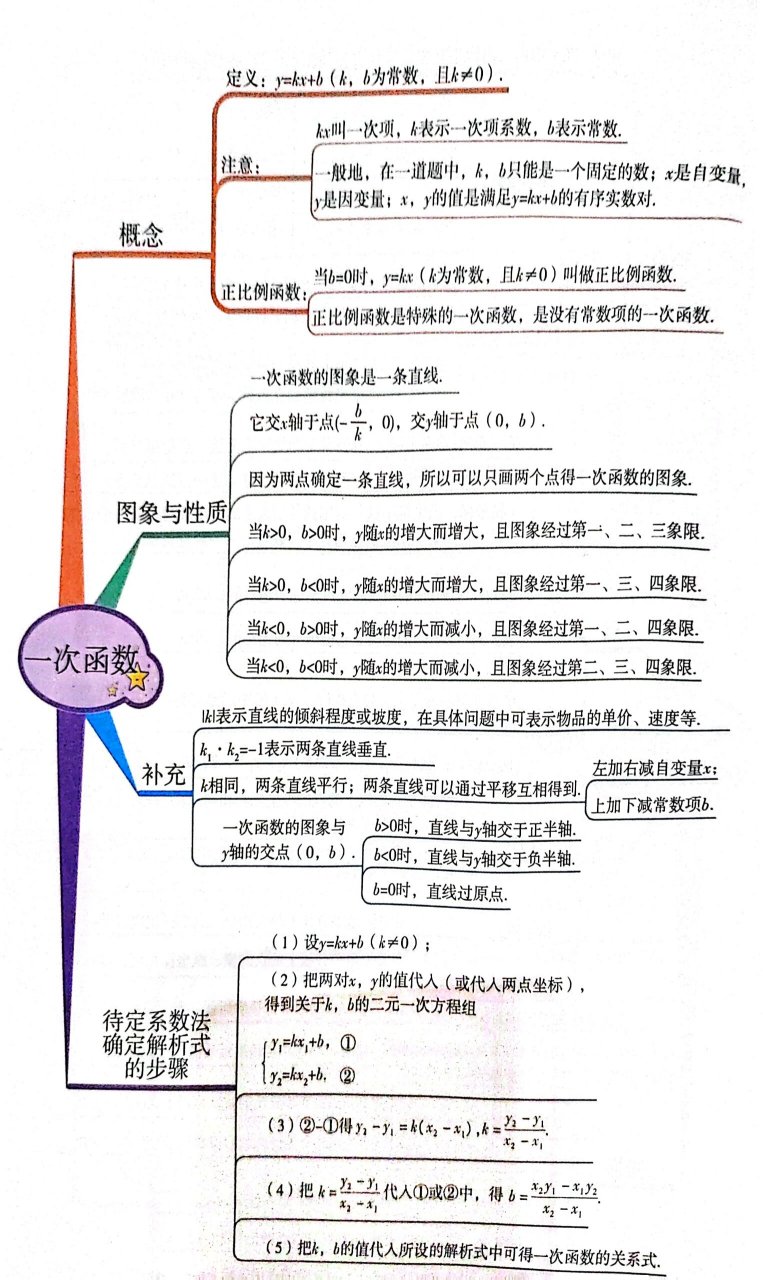 定义：y=kx+b（k，b为常数，且k≠0）.
kx叫一次项，k表示一次项系数，b表示常数.
注意：
一般地，在一道题中，k，b只能是一个固定的数；x是自变量，
y是因变量；x，y的值是满足y=kx+b的有序实数对.
概念
当b=0时，y=kx（k为常数，且k≠0）叫做正比例函数.
正比例函数：
正比例函数是特殊的一次函数，是没有常数项的一次函数.
一次函数的图象是一条直线.
它交x轴于点(-b/k，0)，交y轴于点（0，b）.
因为两点确定一条直线，所以可以只画两个点得一次函数的图象.
图象与性质
当k>0，b>0时，y随x的增大而增大，且图象经过第一、二、三象限.
当k>0，b<0时，y随x的增大而增大，且图象经过第一、三、四象限.
当k<0，b>0时，y随x的增大而减小，且图象经过第一、二、四象限.
当k<0，b<0时，y随x的增大而减小，且图象经过第二、三、四象限.
一次函数
|k|表示直线的倾斜程度或坡度，在具体问题中可表示物品的单价、速度等.
k₁·k₂=-1表示两条直线垂直.
补充
k相同，两条直线平行；两条直线可以通过平移互相得到.
左加右减自变量x；
上加下减常数项b.
一次函数的图象与
y轴的交点（0，b）.
b>0时，直线与y轴交于正半轴.
b<0时，直线与y轴交于负半轴.
b=0时，直线过原点.
待定系数法
确定解析式
的步骤
（1）设y=kx+b（k≠0）；
（2）把两对x，y的值代人（或代人两点坐标），
得到关于k，b的二元一次方程组
y₁=kx₁+b，①
y₂=kx₂+b，②
（3）②-①得y₂-y₁=k(x₂-x₁),k=(y₂-y₁)/(x₂-x₁).
（4）把k=(y₂-y₁)/(x₂-x₁)代人①或②中，得b=(x₂y₁-x₁y₂)/(x₂-x₁).
（5）把k，b的值代人所设的解析式中可得一次函数的关系式.